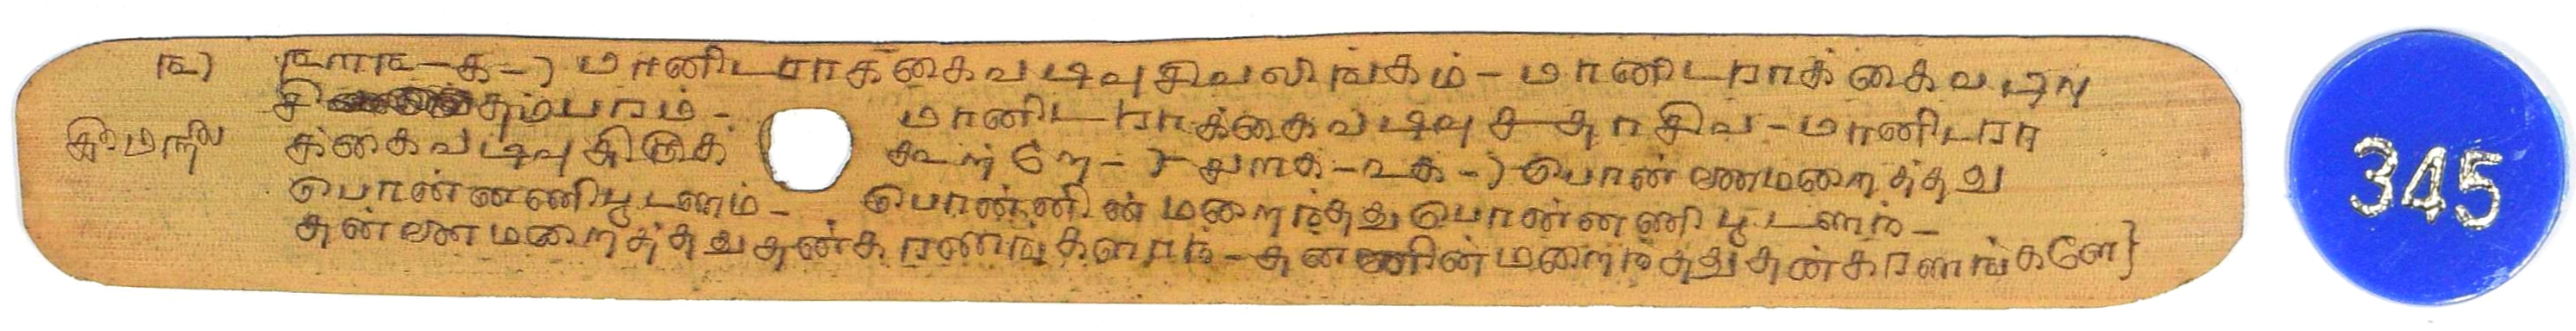 ங) ஙளஙக-) மானிடராக்கைவடிவுசிவலிங்கம்-மானிடராக்கைவடிவு
சிதம்பரம்- மானிடராக்கைவடிவு சதாசிவ-மானிடரா
க்கைவடிவுதிருக் கூற்றே-
பொன்னைமறைத்தது
பொன்னணிபூடணம்- பொன்னின் மறைந்ததுபொன்னணிபூடணம்-
தன்னைமறைத்ததுதன்கரணங்களாம்-தன்னின்மறைந்ததுதன்கரணங்களே
345